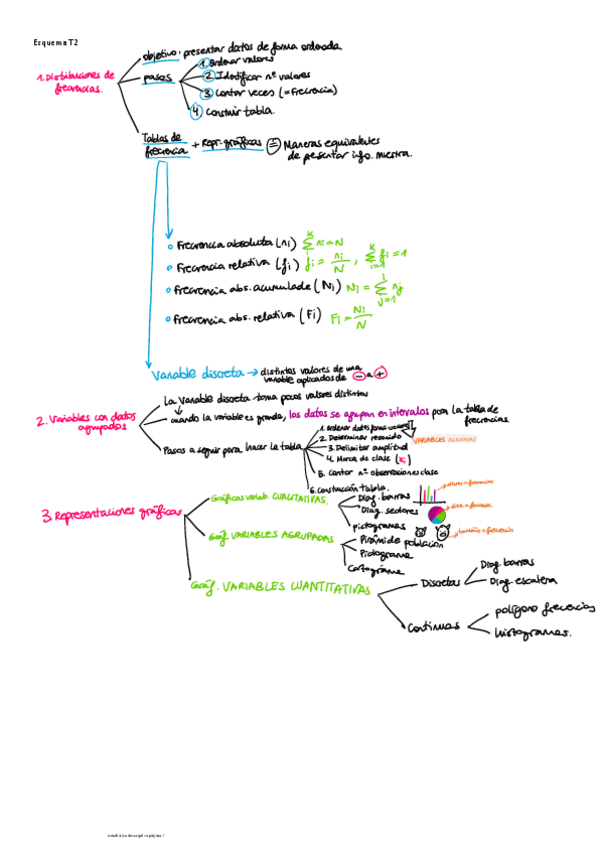 Esquema T2
1. Distribuciones de frecuencias.
objetivo: presentar datos de forma ordenada
pasos
1. Ordenar valores
2. Identificar nº valores
3. Contar veces (= Frecuencia)
4. Construir tabla.
Tablas de frecuencia + Repr. gráficas = Maneras equivalentes
de presentar info. muestra.
Frecuencia absoluta (ni) ∑ ni = N
Frecuencia relativa (fi) fi = ni/N , ∑ fi = 1
Frecuencia abs. acumulada (Ni) Ni = ∑ nj
Frecuencia abs. relativa (Fi) Fi = Ni/N
Variable discreta → distintos valores de una
variable aplicados de - a +
2. Variables con datos agrupados
La variable discreta toma pocos valores distintos
cuando la variable es grande, los datos se agrupan en intervalos para la tabla de
frecuencias
Pasos a seguir para hacer la tabla
1. Ordenar datos forma
2. Determinar recorrido
VARIABLES AGRUPADAS
3. Delimitar amplitud
4. Marca de clase (xi)
5. Contar nº observaciones clase
6. Construcción tabla.
3. Representaciones gráficas
Gráficas variab. CUALITATIVAS
Diag. barras
altura = frecuencia
Diag. sectores
área = frecuencia
pictogramas
tamaño = frecuencia
Gráf. VARIABLES AGRUPADAS
Pirámide población
Pictograma
Cartograma
Gráf. VARIABLES CUANTITATIVAS
Discretas
Diag barras
Diag. escalera
Continuas
polígono frecuencias
histogramas.